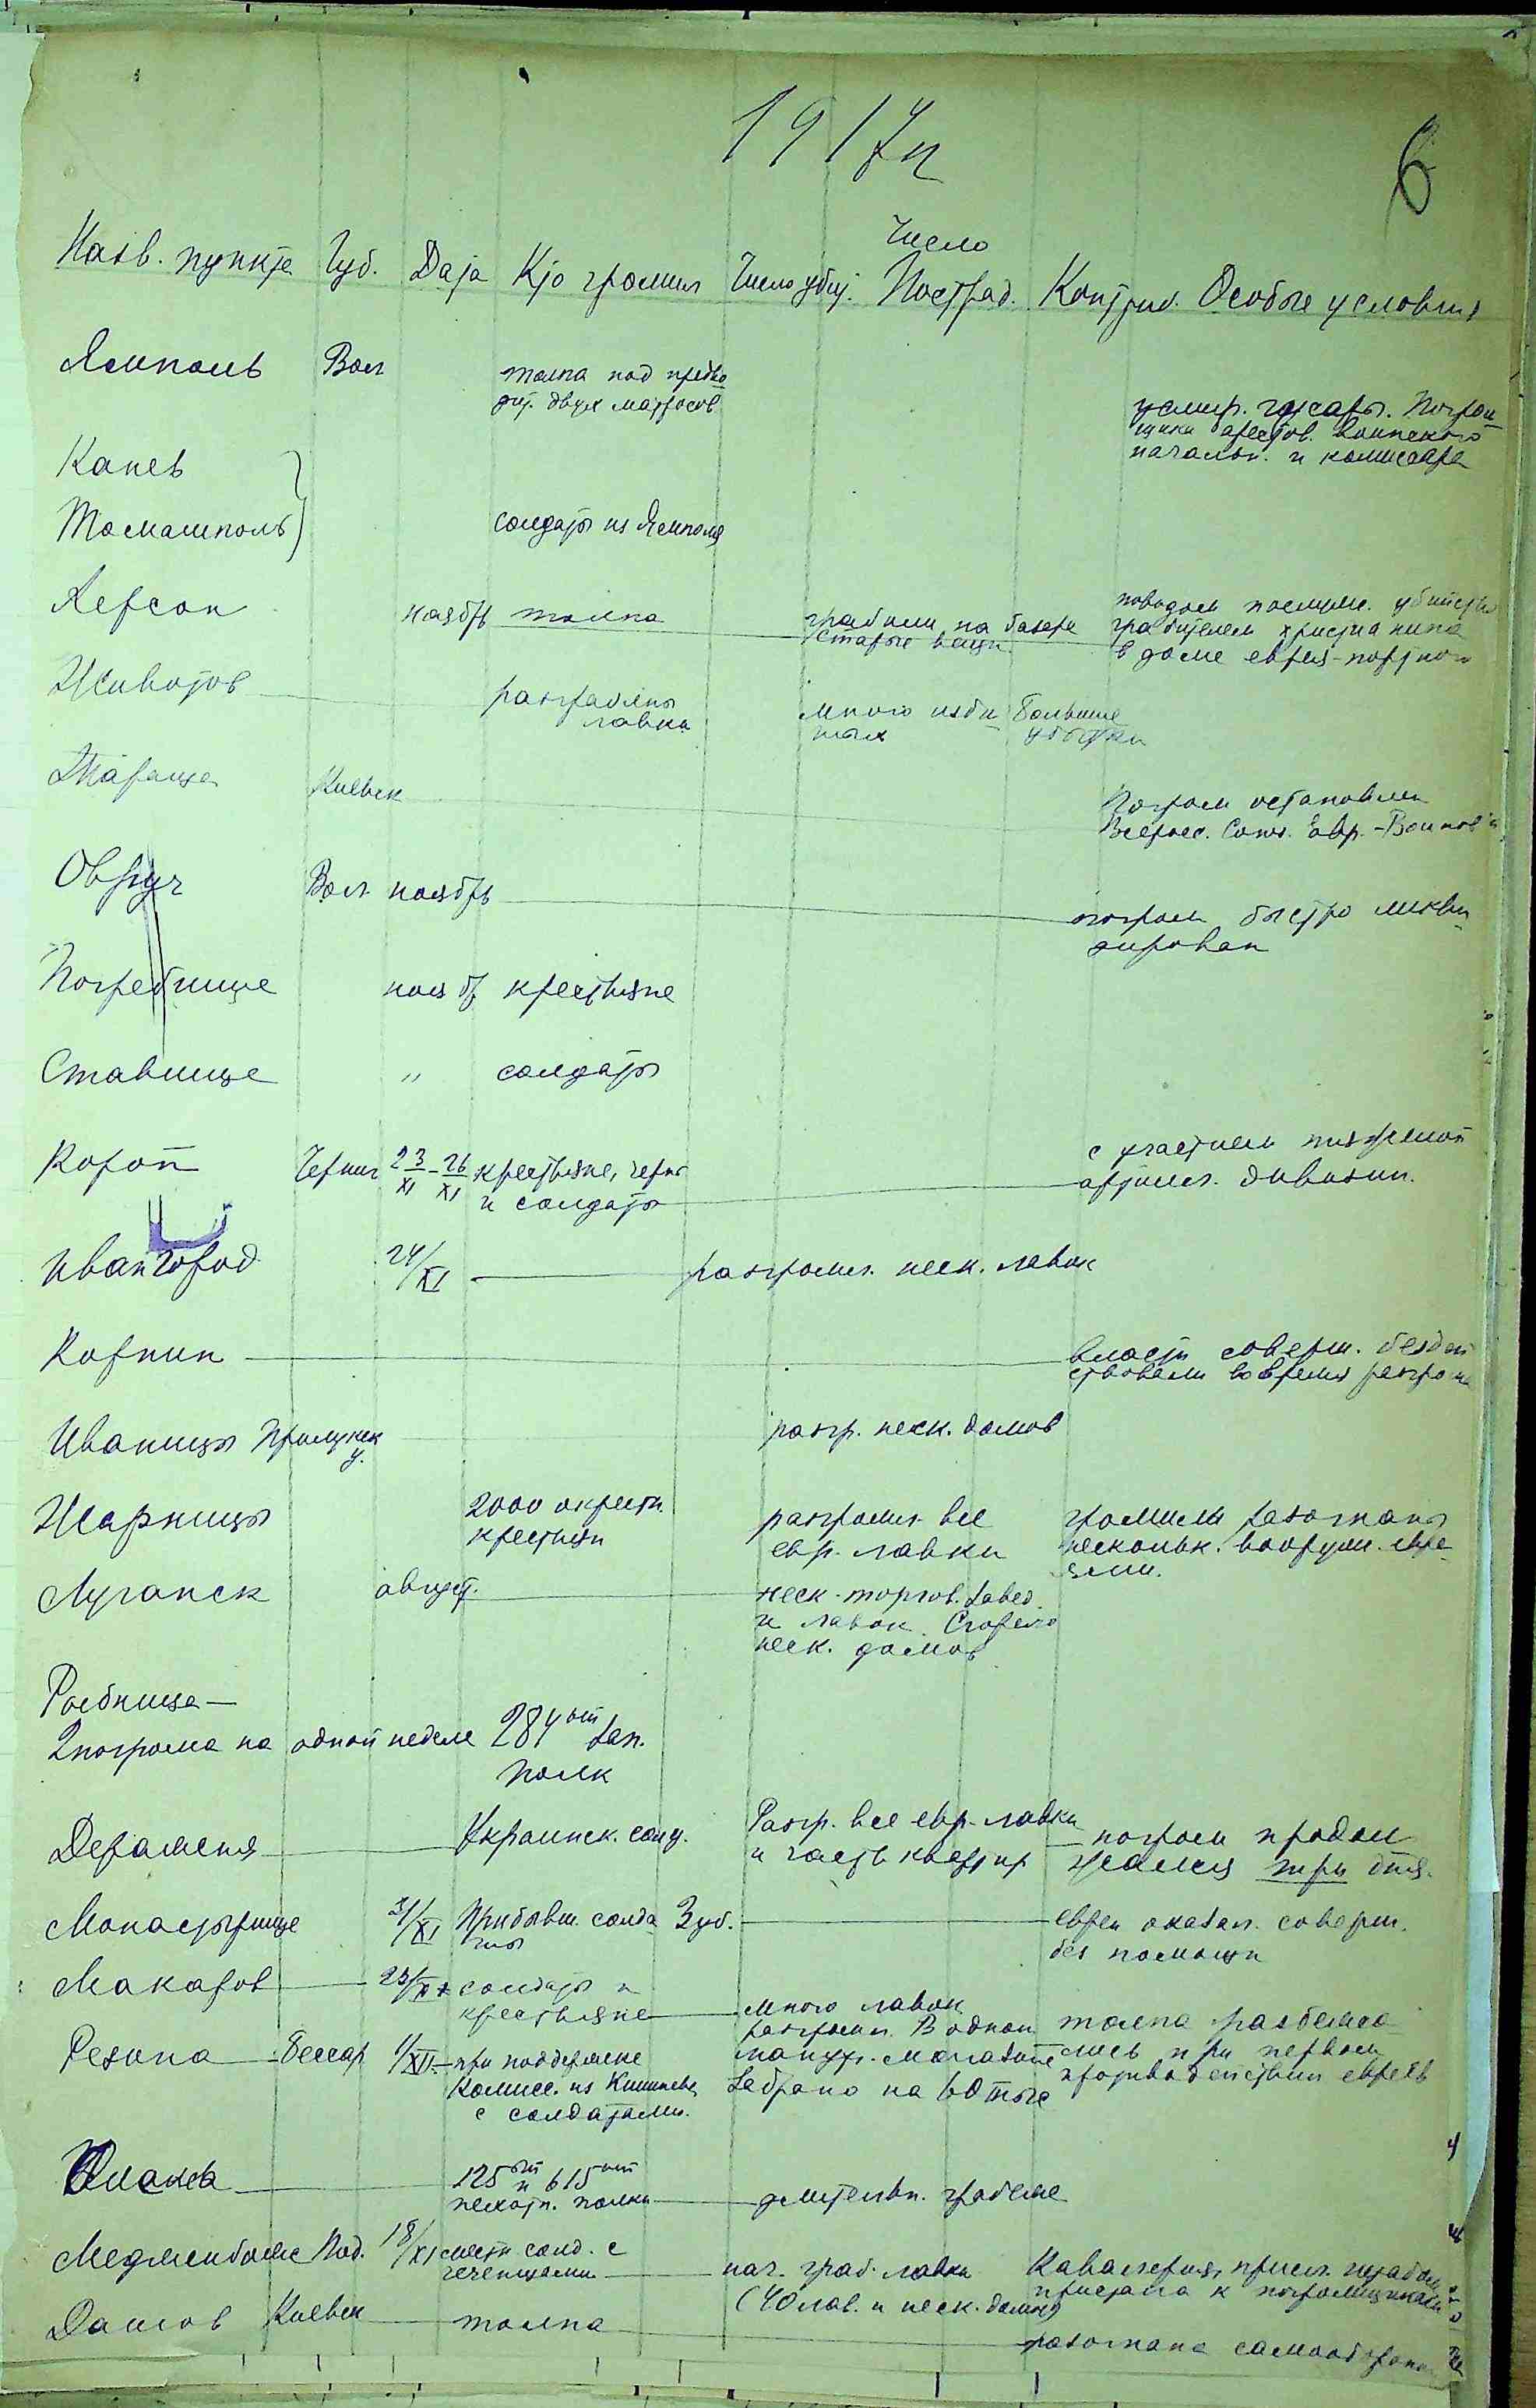 1917 г.
6
Назв. пункта Губ. Дата Кто громил Число убит. Число Пострад. Контриб. Особые условия
Ямполь Вол толпа под предво
дит. двух матросов
усмир. гусары. Погром
щики арестов. воинского
начальн. и комиссара
Канев
Томашполь солдаты из Ямполя
Херсон ноябрь толпа грабили на базаре
старые вещи
поводом послуж. убийство
грабителем христианина
в доме еврея-портного
Животов разграблены
лавки
много изби
тых
большие
убытки
Тараща Киевск Погром остановлен
Всеросс. Союз. Евр.-Воинов
Овруч Вол. ноябрь погром быстро ликви
дирован
Погребище нояб крестьяне
Ставище " солдаты
Короп Черниг 23/XI - 26/XI крестьяне, чернь
и солдаты
с участием
артилл. дивизии.
Ивангород 24/XI разгромл. неск. лавок
Корнин власти соверш. бездей
ствовали во время разгрома
Иваницы Прилукск
у.
разгр. неск. домов
Жарницы 2000 окрестн.
крестьян
разгромл. все
евр. лавки
громилы разогнаны
нескольк. вооруж. евре
ями.
Луганск август. неск. торгов. завед.
и лавок. Сгорело
неск. домов
Рыбница —
2 погрома на одной неделе 284ый зап.
полк
Деражня Украинск. солд. Разгр. все евр. лавки
и часть квартир
погром продол
жался три дня.
Монастырище 21/XI Прибывш. солда
ты
3 уб. евреи оказал. соверш.
без помощи
Макаров 23/XI солдаты и
крестьяне
много лавок
разгромл. В одном
мануф. магазине
забрано на 60 тыс
Резина Бессар 1/XII при поддержке
комисс. из Кишинева
с солдатами.
толпа разбежа
лась при первом
противодействии евреев
125ый и 615ый
пехотн. полки
длительн. грабеж
Меджибож Под. 18/XI солд. с
чеченцами
нач. граб. лавки
(40 лав. и неск. домов)
Кавалерия, присл.
пристала к погромщикам
Дашов Киевск толпа разогнана самообороной